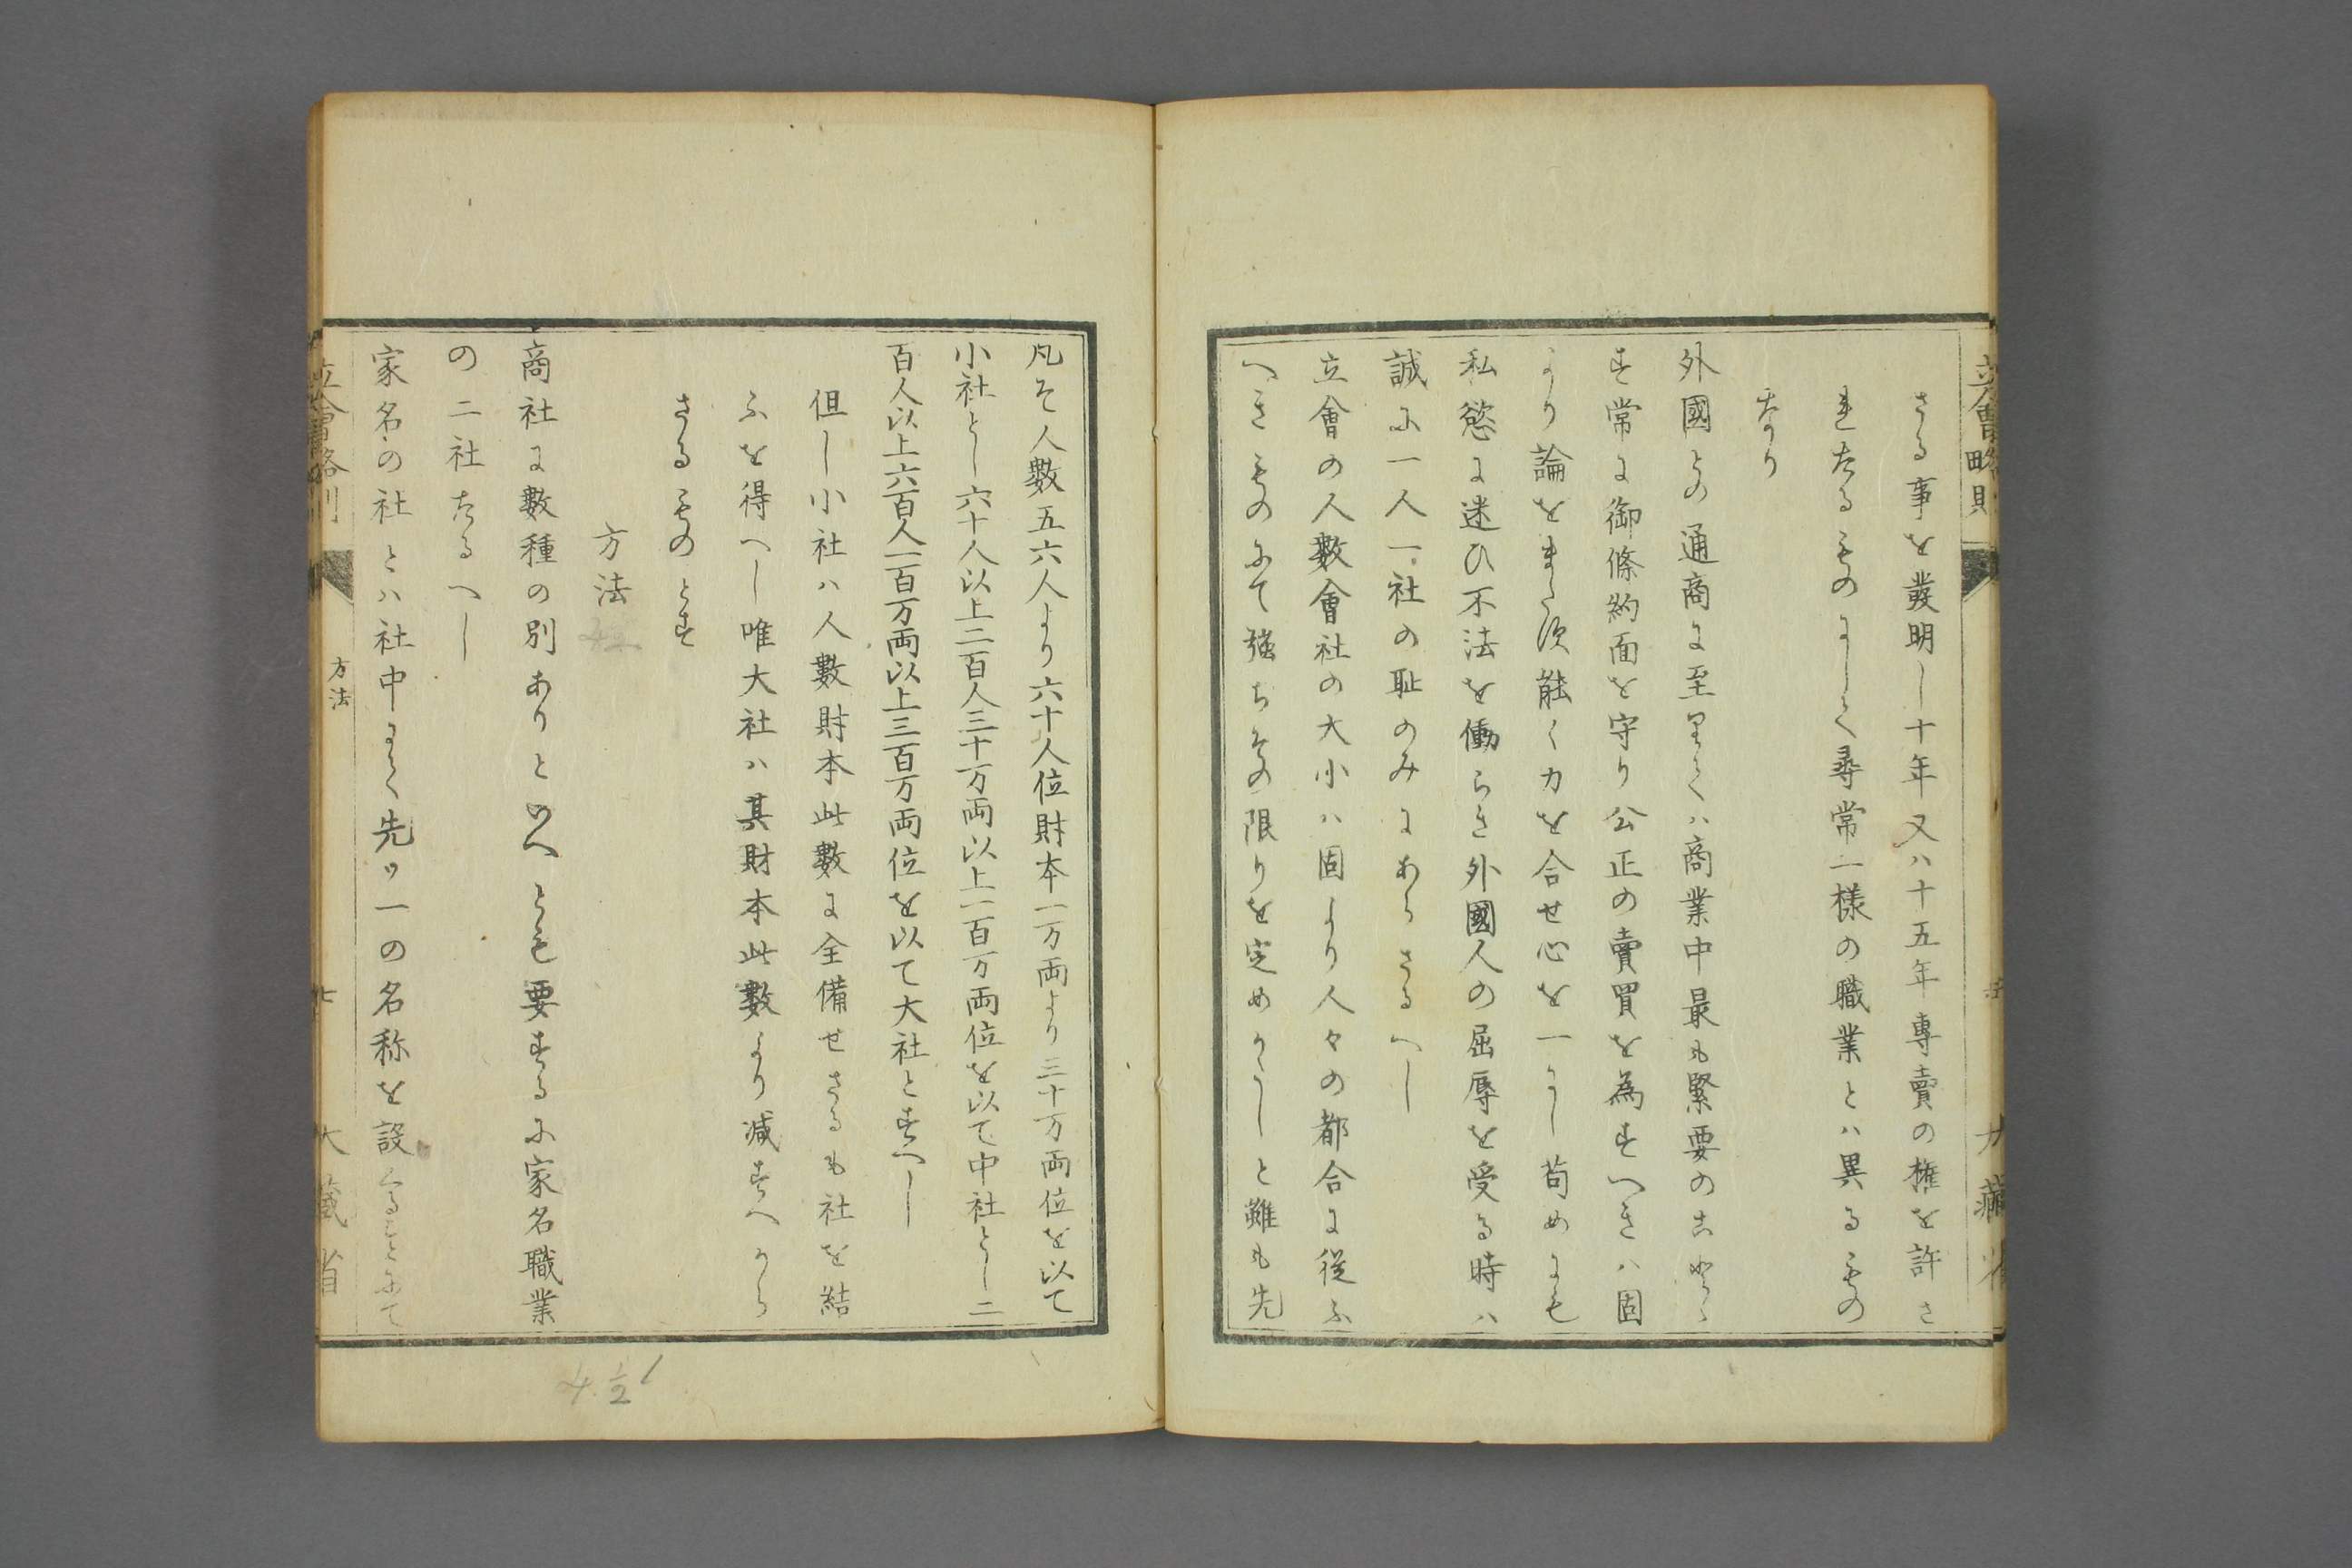 立會略則
大藏省
さる事を發明し十年又ハ十五年專賣の權を許さ
れたるものにして尋常一樣の職業とハ異るもの
なり
外國との通商に至りてハ商業中最も緊要の
す常に御條約面を守り公正の賣買を為すへきハ固
より論をまたす能く力を合せ心を一にし苟めにも
私慾に迷ひ不法を働らき外國人の屈辱を受る時ハ
誠に一人一社の耻のみにあらさるへし
立會の人數會社の大小ハ固より人々の都合に從ふ
へきものにて強ちその限りを定めかたしと雖も先
凡そ人數五六人より六十人位財本一万両より三十万両位を以て
小社とし六十人以上二百人三十万両以上一百万両位を以て中社とし二
百人以上六百人一百万両以上三百万両位を以て大社とすへし
但し小社ハ人數財本此數に全備せさるも社を結
ふを得へし唯大社ハ其財本此數より減すへから
さるものとす
方法
商社に數種の別ありといへとも要するに家名職業
の二社たるへし
家名の社とハ社中にて先ツ一の名称を設くることにて
立會略則
方法
七
大藏省
4 1/2